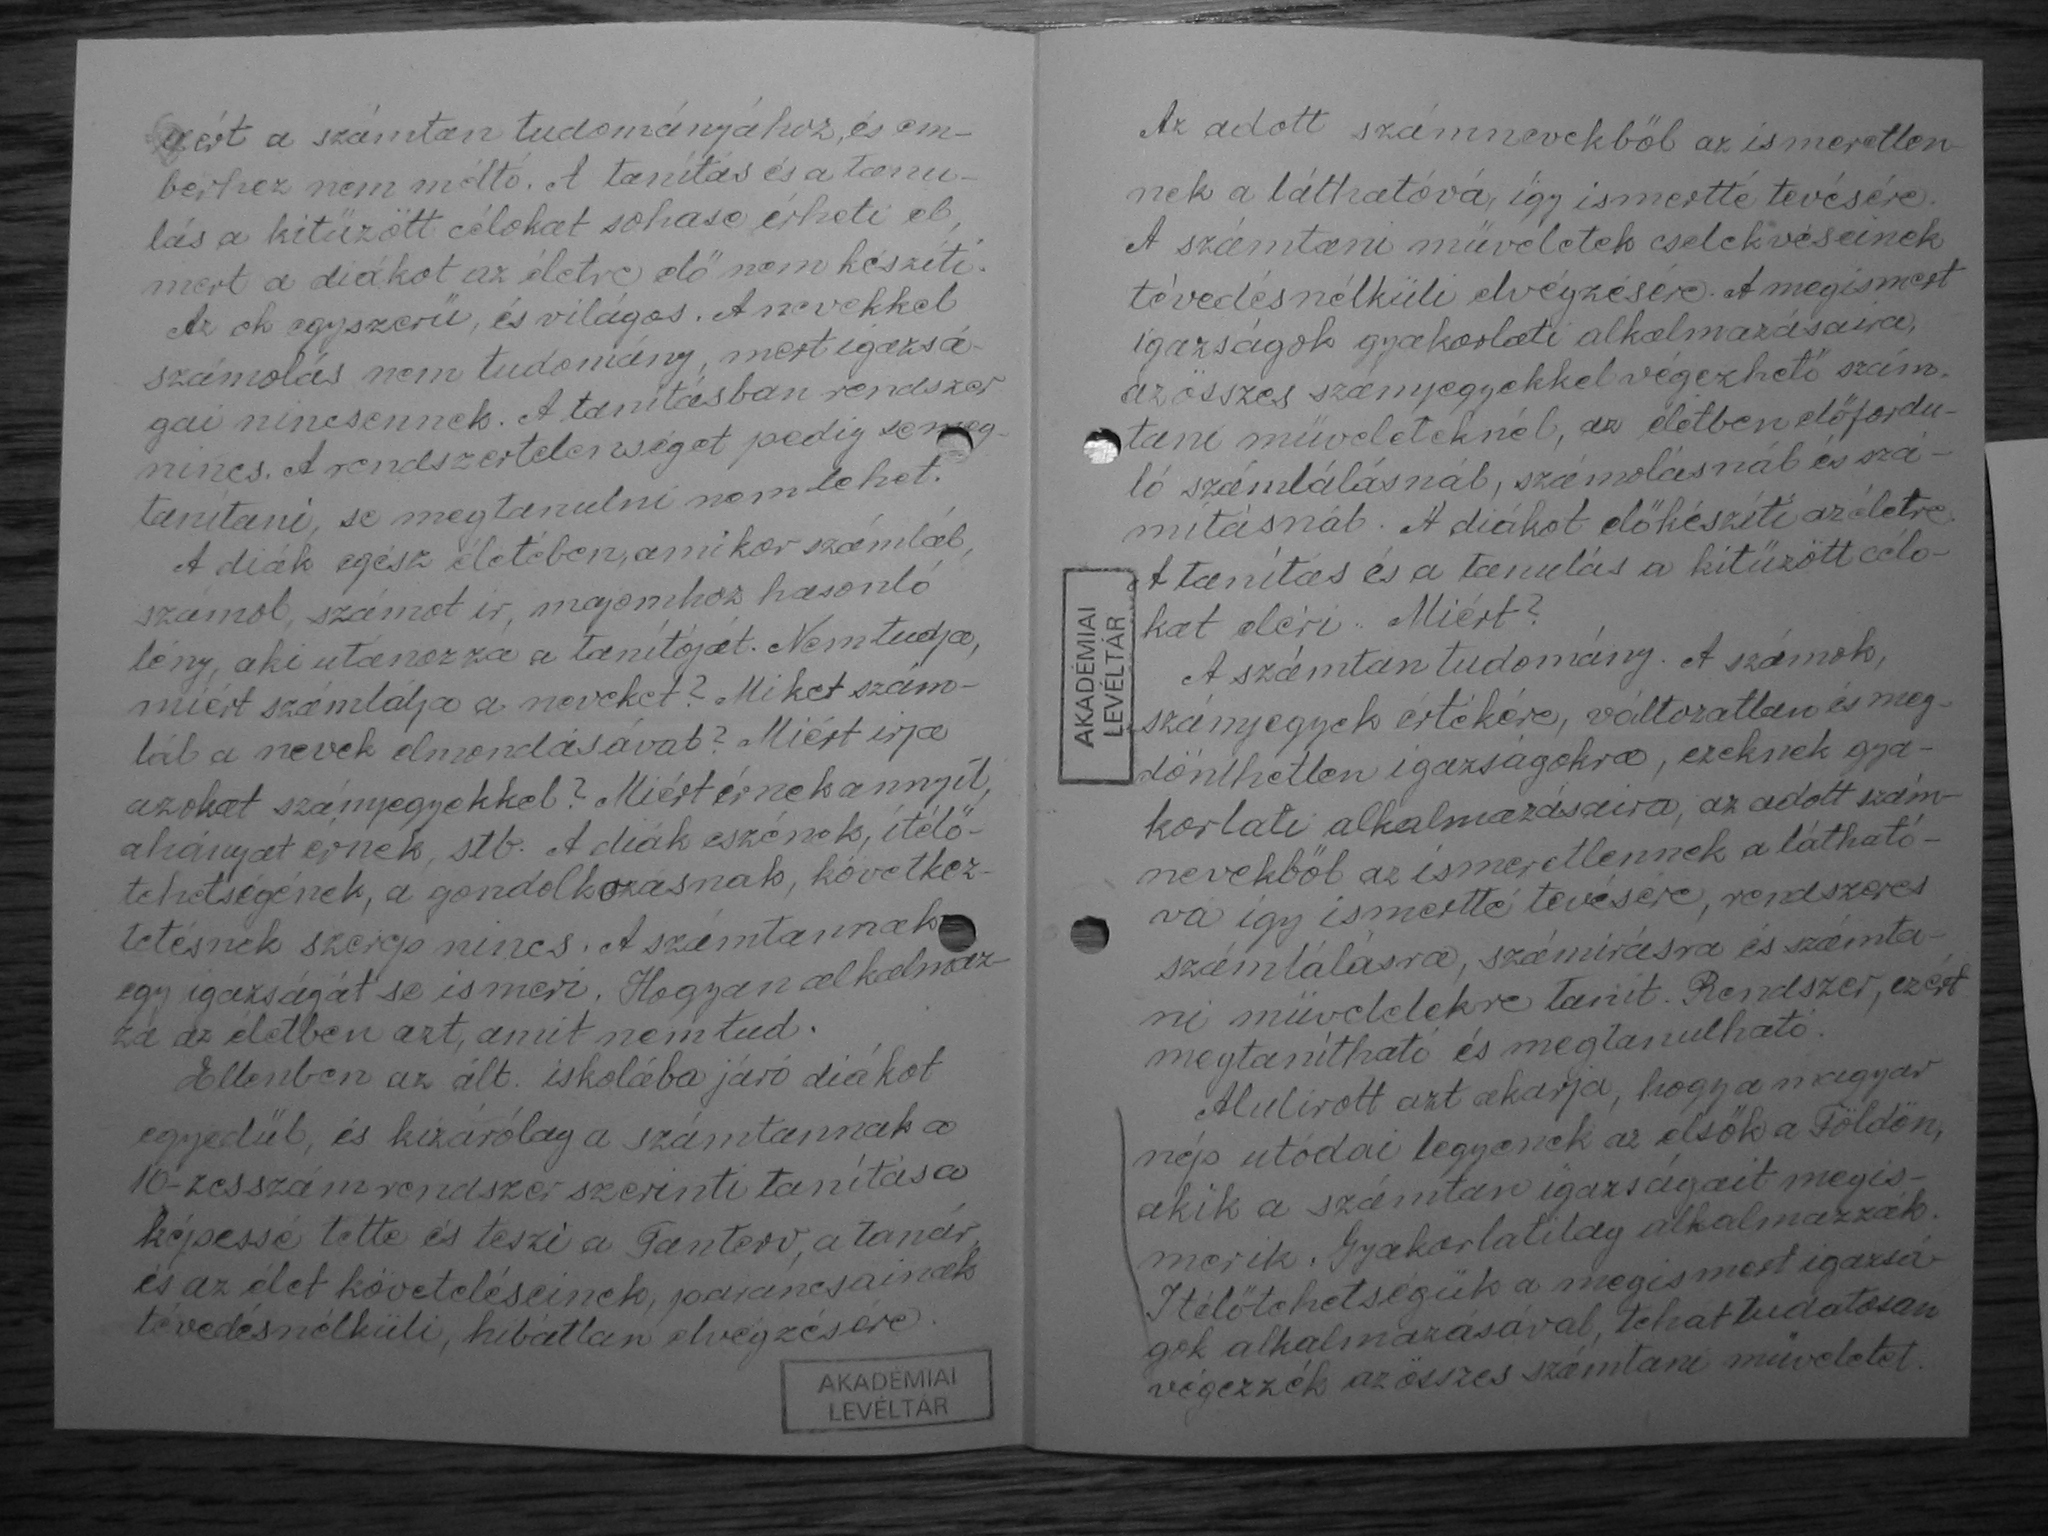 ezért a számtan tudományához, és em-
berhez nem méltó. A tanítás és a tanu-
lás a kitűzött célokat sohase érheti el,
mert a diákot az életre elő nem készíti.
Az ok egyszerű, és világos. A nevekkel
számolás nem tudomány, mert igazsá-
gai nincsennek. A tanításban rendszer
nincs. A rendszertelenséget pedig se meg-
tanítani, se megtanulni nem lehet.
A diák egész életében, amikor számlál,
számol, számot ir, majomhoz hasonló
lény, aki utánozza a tanítóját. Nem tudja,
miért számlálja a neveket? Miket szám-
lál a nevek elmondásával? Miért irja
azokat számjegyekkel? Miért érnek annyit,
ahányat érnek, stb. A diák eszének, ítélő-
tehetségének, a gondolkozásnak, következ-
tetésnek szerep nincs. A számtannak
egy igazságát se ismeri. Hogyan alkalmaz-
za az életben azt, amit nem tud.
Ellenben az ált. iskolába járó diákot
egyedül, és kizárólag a számtannak a
10-zesszámrendszer szerinti tanítása
képessé tette és teszi a Tanterv, a tanár,
és az élet követeléseinek, parancsainak
tévedésnélküli, hibátlan elvégzésére.
AKADÉMIAI
LEVÉLTÁR
Az adott számnevekből az ismeretlen-
nek a láthatóvá, így ismertté tevésére.
A számtani műveletek cselekvéseinek
tévedésnélküli elvégzésére. A megismert
igazságok gyakorlati alkalmazásaira,
az összes számjegyekkel végezhető szám-
tani műveleteknél, az életben előfordu-
ló számlálásnál, számolásnál és szá-
mításnál. A diákot előkészíti az életre.
A tanítás és a tanulás a kitűzött célo-
kat eléri. Miért?
AKADÉMIAI
LEVÉLTÁR
A számtan tudomány. A számok,
számjegyek értékére, változatlan és meg-
dönthetlen igazságokra, ezeknek gya-
korlati alkalmazásaira, az adott szám-
nevekből az ismeretlennek a látható-
vá így ismertté tevésére, rendszeres
számlálásra, számirásra és számta-
ni műveletekre tanit. Rendszer, ezért
megtanítható és megtanulható.
Alulirott azt akarja, hogy a magyar
nép utódai legyenek az elsők a Földön,
akik a számtan igazságait megis-
merik. Gyakorlatilag alkalmazzák.
Itélőtehetségük a megismert igazsá-
gok alkalmazásával, tehát tudatosan
végezzék az összes számtani műveletet.